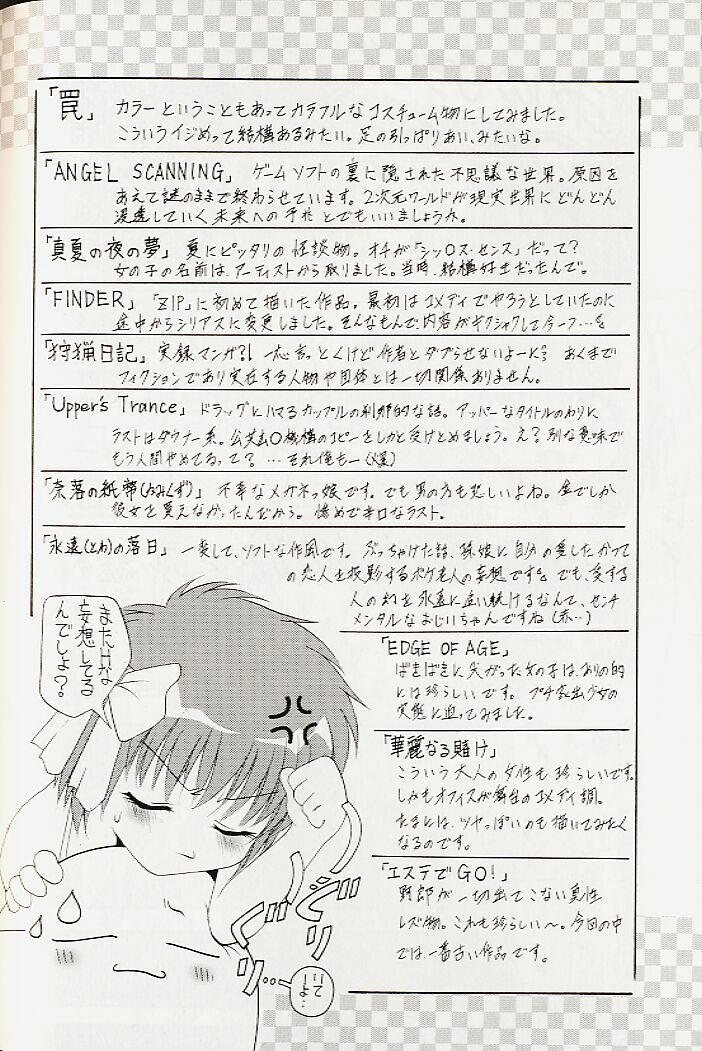 「罠」 カラーということもあってカラフルなコスチューム物にしてみました。
こういうイジめって結構あるみたい。足の引っぱりあい、みたいな。
「ANGEL SCANNING」 ゲームソフトの裏に隠された不思議な世界。原因を
あえて謎のままで終わらせています。2次元ワールドが現実世界にどんどん
浸透していく未来への予兆とでもいいましょうか。
「真夏の夜の夢」 夏にピッタリの怪談物。オチが「シッ○ス・センス」だって?
女の子の名前は、アーティストから取りました。当時、結構好きだったんで。
「FINDER」 「ZIP」に初めて描いた作品。最初はコメディでやろうとしていたのに
途中からシリアスに変更しました。そんなもんで、内容がギクシャクして今一つ…
「狩猟日記」 実録マンガ?! 一応言っとくけど作者とダブらせないよーに? あくまで
フィクションであり実在する人物や団体とは一切関係ありません。
「Upper's Trance」 ドラッグにハマるカップルの刹那的な話。アッパーなタイトルのわりに
ラストはダウナー系。公共広○機構のコピーをしかと受けとめましょう。え?別な意味で
もう人間やめてるって? …それ俺もー(爆)
「奈落の紙幣(かみくず)」 不幸なメガネっ娘です。でも男の方も悲しいよね。金でしか
彼女を買えなかったんだから。惨めで辛口なラスト。
「永遠(とわ)の落日」 一変して、ソフトな作風です。ぶっちゃけた話、孫娘に自分の愛したかつて
の恋人を投影するボケ老人の妄想です。でも、愛する
人の幻を永遠に追い続けるなんて、センチ
メンタルなおじいちゃんですね(赤…)
「EDGE OF AGE」
ばきばきに尖がった女の子は、ありの的
には珍らしいです。プチ家出少女の
実態に迫ってみました。
「華麗なる賭け」
こういう大人の女性も珍らしいです。
しかもオフィスが舞台のコメディ調。
たまには、ツヤっぽいのも描いてみたく
なるのです。
「エステでGO!」
野郎が一切出てこない異性
レズ物。これも珍らしい〜。今回の中
では、一番古い作品です。
またHな
妄想してる
んでしょ?
グリグリ
グリ…